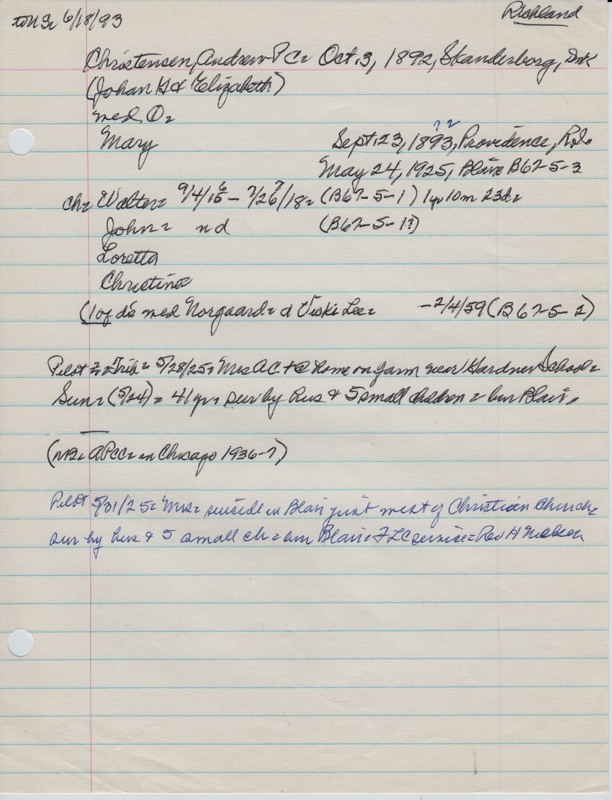 to U Sr 6/18/93
Richland
Christensen, Andrew P C= Oct. 3, 1892, Skanderborg, Dmk
(Johan K & Elizabeth)
med O=
Mary Sept. 23, 1893, Providence, R.I.
? 2
May 24, 1925, Blair B67-5-3
ch= Walter= 9/4/16 - 7/26/18= (B67-5-1) 1 yr 10m 23d=
6 7
John= nd (B67-5-1?)
Loretta
Christine
(1 of d's med Norgaard= d Vicki Lee= -2/4/59 (B67-5-2)
Pilot Trib= 5/28/25= Mrs A C + @ home on farm near Gardner School=
Sun= (5/24)= 41 yr= sur by hus & 5 small children= bur Blair.
(NB= APCC= in Chicago 1936-7)
Pilot 5/31/25= Mrs= suicide in Blair just west of Christian Church=
sur by hus & 5 small ch= bur Blair= FLC service= Rev H Nielsen